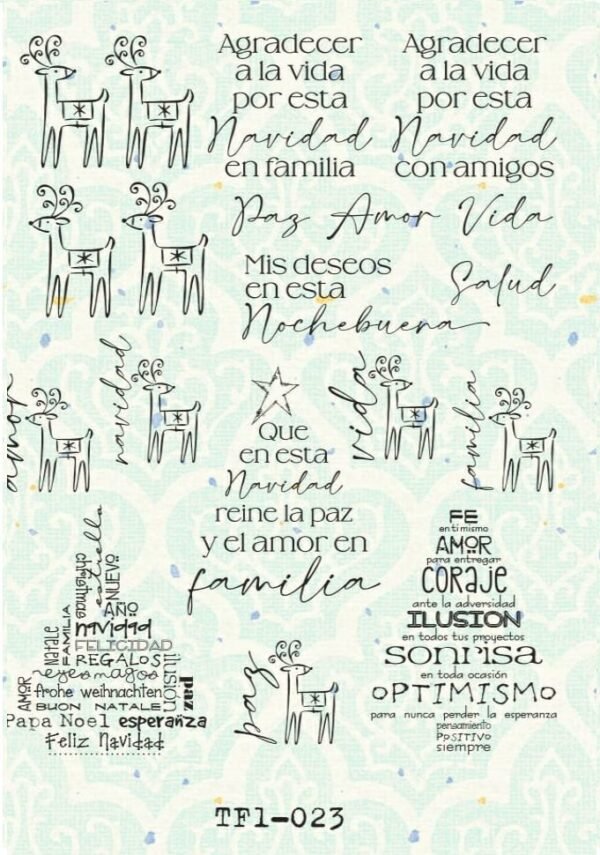 Agradecer
a la vida
por esta
Navidad
en familia
Agradecer
a la vida
por esta
Navidad
con amigos
Paz Amor Vida
Mis deseos
en esta
Nochebuena
Salud
amor
navidad
Que
en esta
Navidad
reine la paz
y el amor en
familia
vida
familia
estrella
christmas
NUEVO
AÑO
navidad
FELICIDAD
REGALOS
reyes magos
NATALE
FAMILIA
ilusión
paz
AMOR
frohe weihnachten
BUON NATALE
Papa Noel esperanza
Feliz Navidad
paz
FE
en ti mismo
AMOR
para entregar
CORAJE
ante la adversidad
ILUSION
en todos tus proyectos
sonrisa
en toda ocasión
OPTIMISMO
para nunca perder la esperanza
pensamiento
POSITIVO
siempre
TF1-023